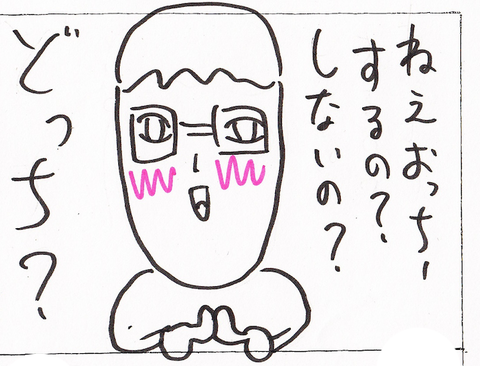 ねえおっちー
するの?
しないの?
どっち?